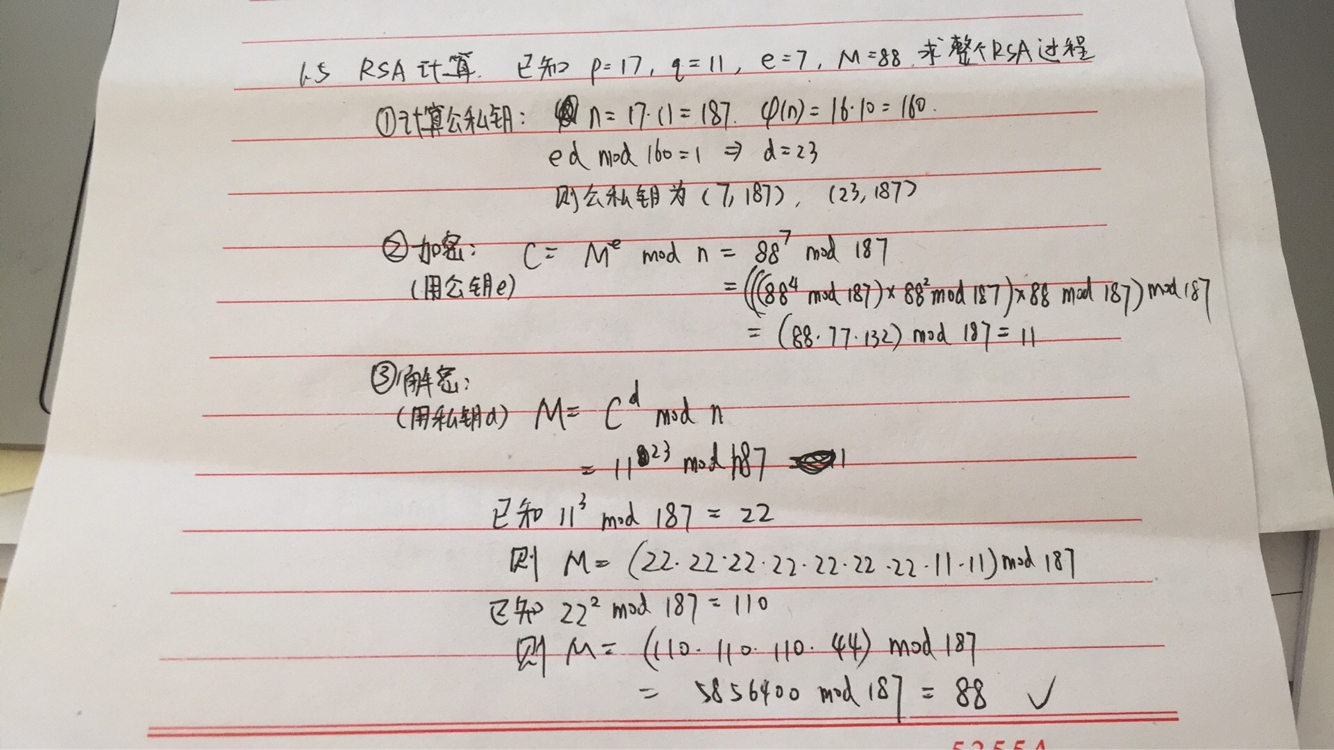 1.5 RSA计算. 已知 p=17, q=11, e=7, M=88. 求整个RSA过程
①计算公私钥: n=17·11=187. φ(n)=16·10=160.
ed mod 160=1 ⇒ d=23
则公私钥为(7,187), (23,187)
②加密: C= Mᵉ mod n = 88⁷ mod 187
(用公钥e) = (((88⁴ mod 187)×88² mod 187)×88 mod 187) mod 187
= (88·77·132) mod 187 = 11
③解密:
(用私钥d) M= Cᵈ mod n
= 11²³ mod 187
已知 11³ mod 187 = 22
则 M= (22·22·22·22·22·22·22·11·11) mod 187
已知 22² mod 187 = 110
则 M= (110·110·110·44) mod 187
= 5856400 mod 187 = 88 ✓